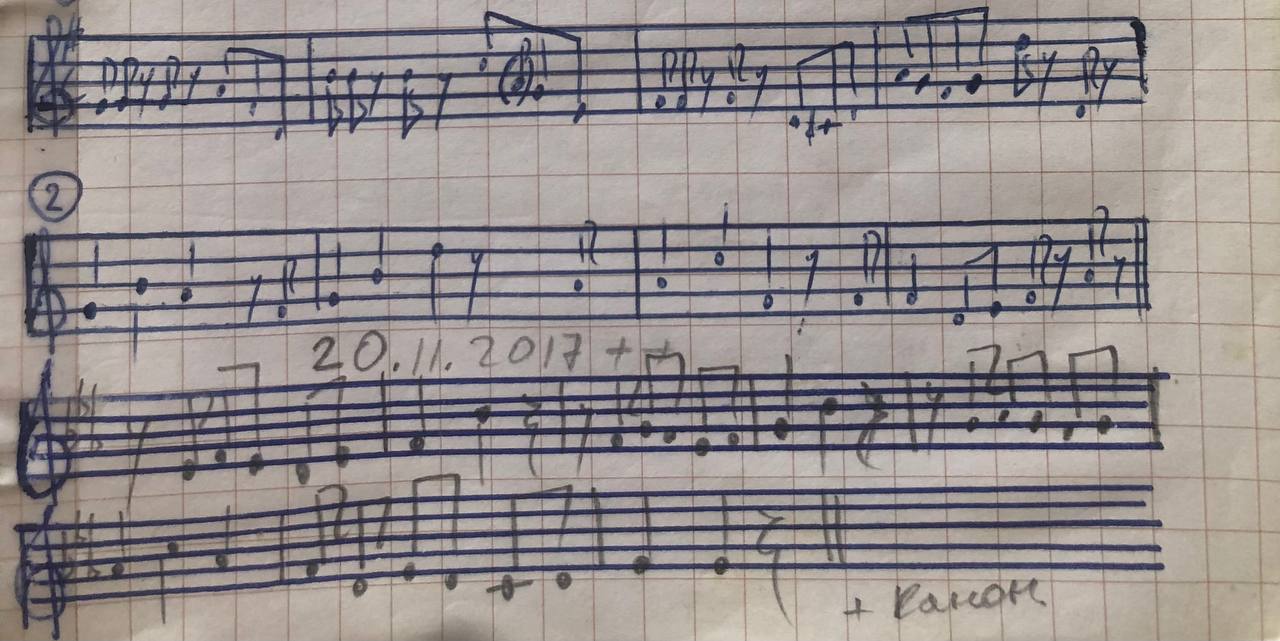 2
20.11.2017 + +
+ канон